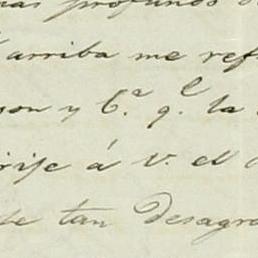 mas profunos d
arriba me ref
son y C.ª q.e la
rije á V. el
de tan Desagra